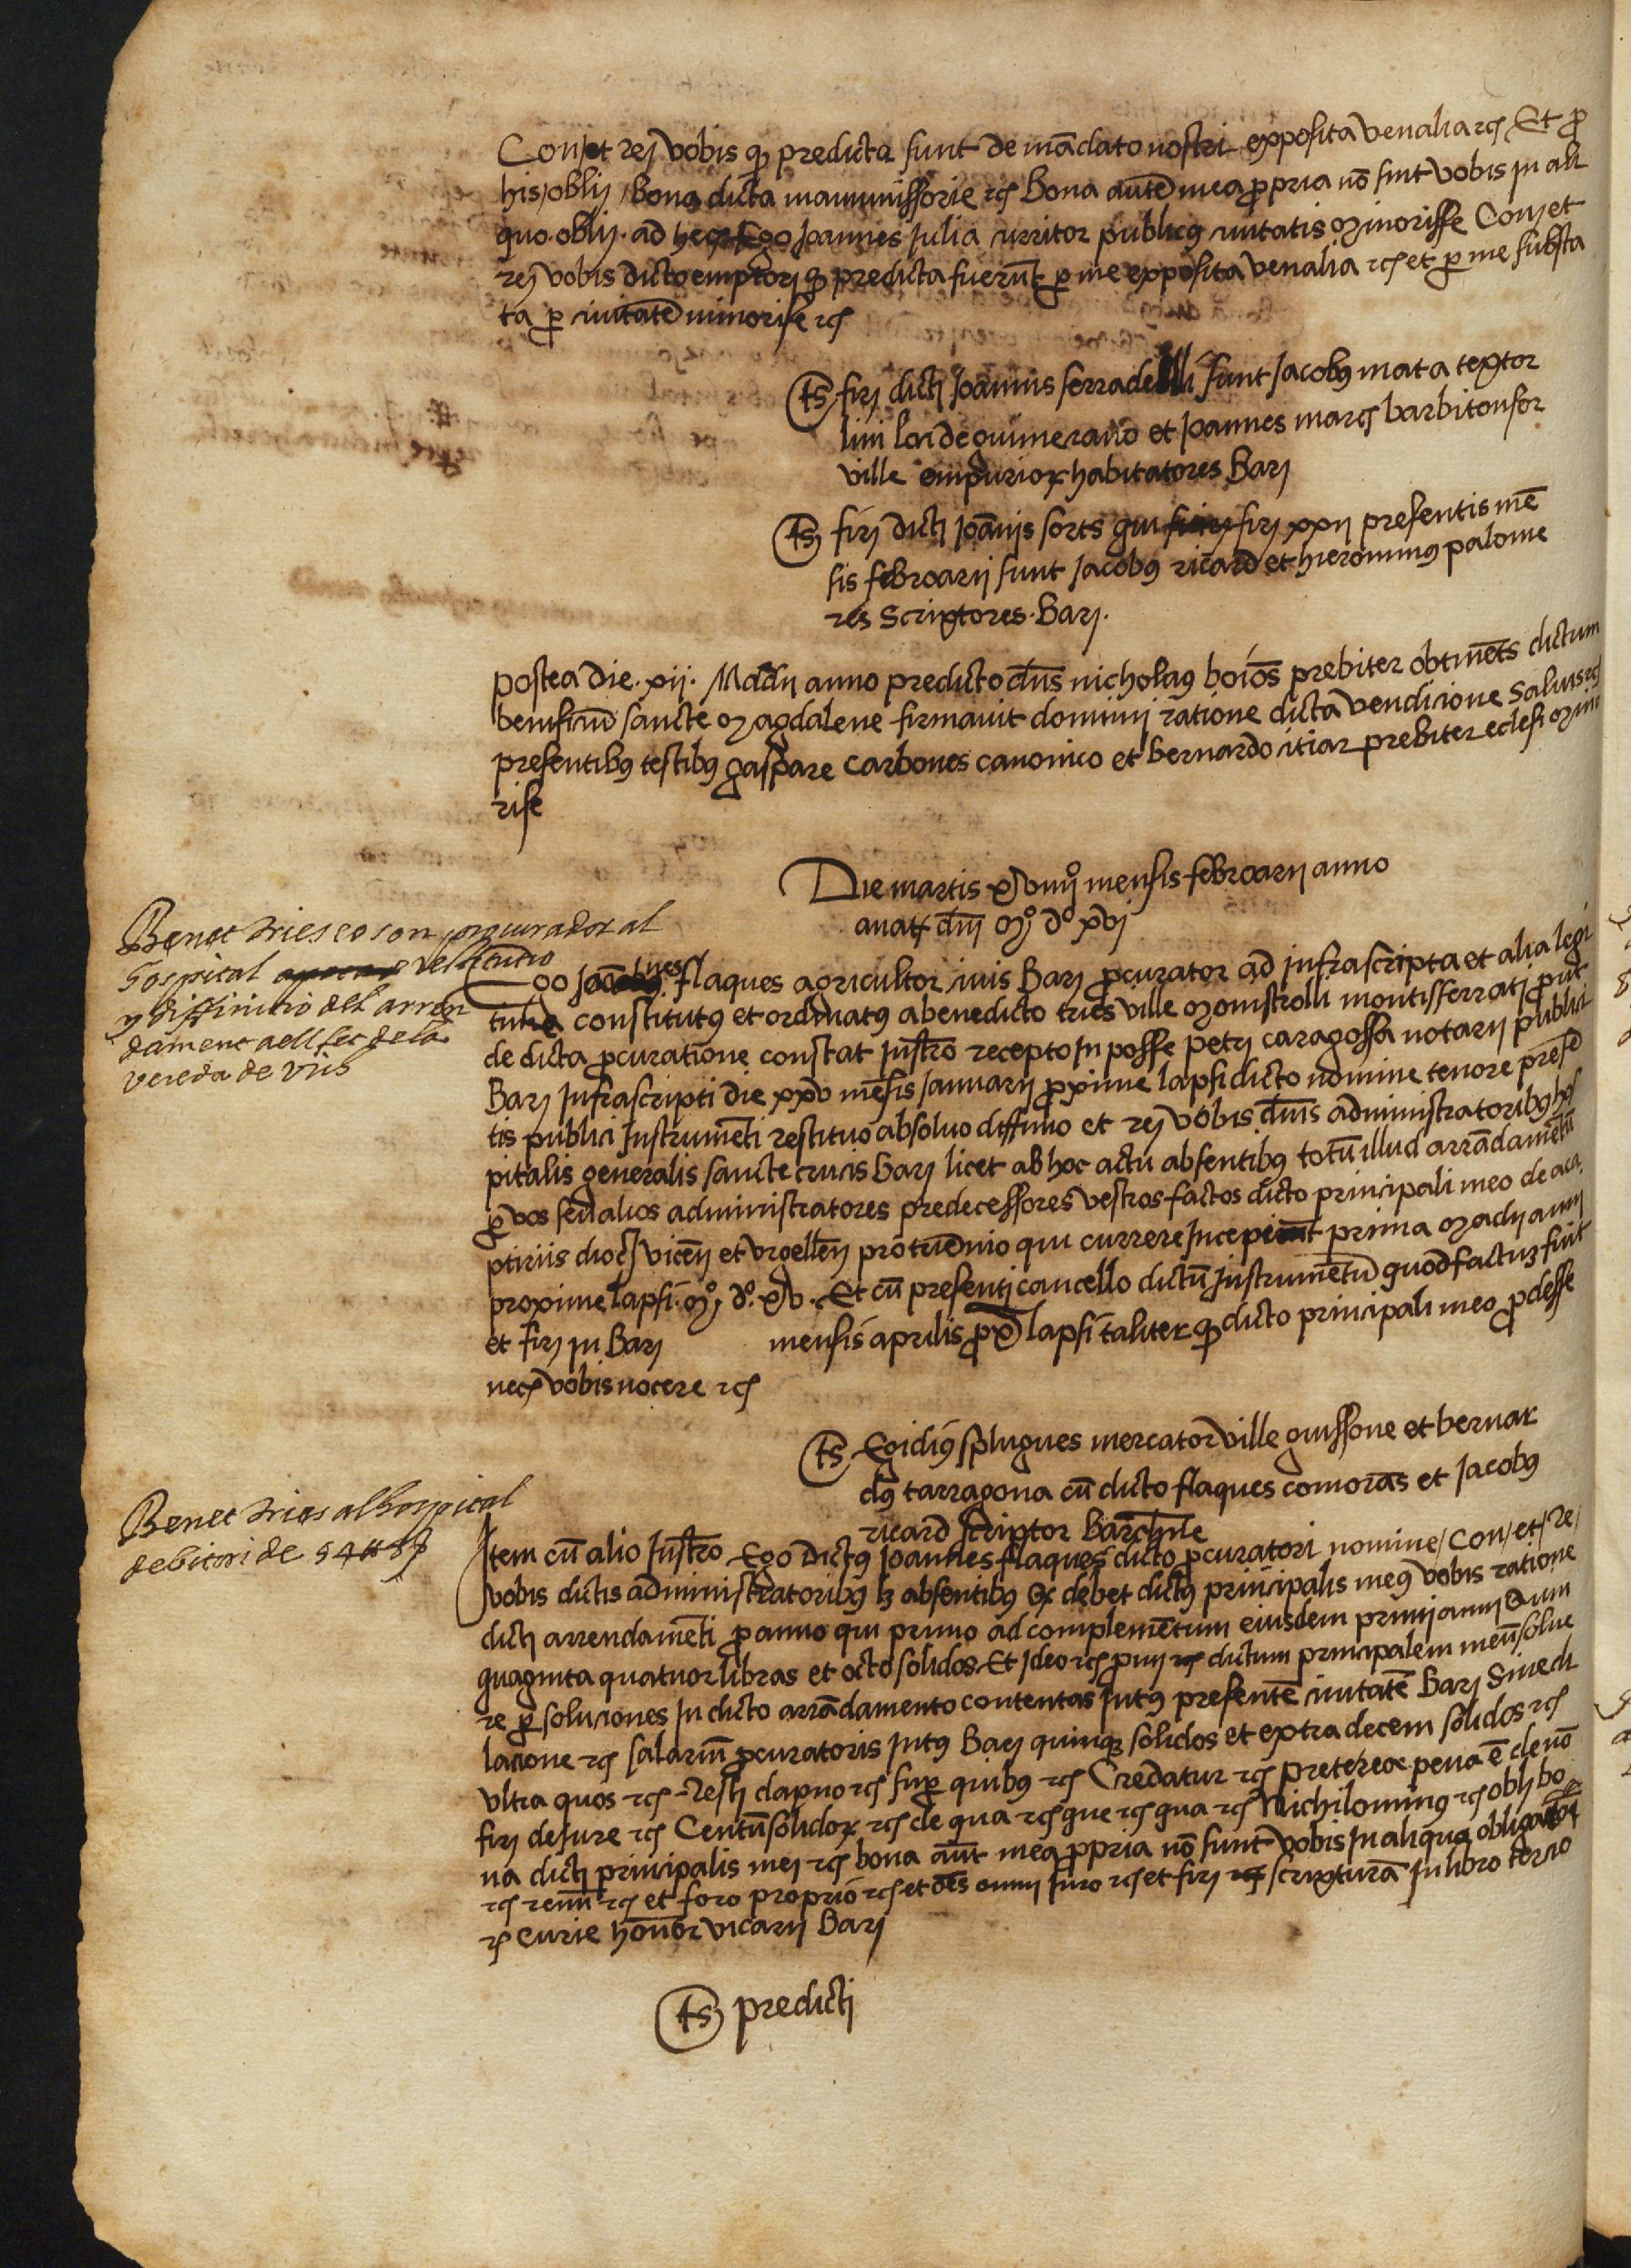 Con et reş vobis q̧ predicta sunt de mādato nostri exposita venalia rcs Et ꝓ
his oblij bona dicta manumissorie rcs Bona autē mea ꝓpria nō sint vobis in ali
quo oblij ad hec Ego Joannes Julia curritor publicus civitatis Minorisse Con et
reş vobis dicto emptorj q̧ predicta fuerūt ꝑ me exposita venalia rcs et ꝑ me substa
ta ꝑ civitatē minorise rcs
ts firj dictj Joannis serradelli sunt Jacobus mata textor
lini loci de guimerano et Joannes marcs barbitonsor
ville empurioꝝ habitatores Barj
ts firj dictj Joānis sorts qui firj xxij presentis mē
sis febroarij sunt Jacobus ricard et hieronimus palome
res scriptores Barj.
postea die xij. Madij anno predicto dn̄s nicholaus boios prebiter obtinēts dictum
benificiū sancte Magdalene firmavit dominij ratione dicta vendicione salvis rcs
presentibus testibus gaspare carbones canonico et bernardo itiar prebiter eclesi Mino
rise
Die martis xxviiij mensis febroarij anno
a natꝭ dn̄i Mº dº xvj
Benet tries e o son procurador al
hospital restitucio
y diffinicio del arren
dament a ell fet de la
vereda de vris
Ego Joānes flaques agricultor civis Barj ꝓcurator ad infrascripta et alia legi
time constitutus et ordinatus a benedicto tries ville Monistrolli montisserratj ꝓut
de dicta ꝓcuratione constat instr̄o recepto in posse petrj caragossa notarij publici
Barj infrascripti die xxv mēsis Januarij ꝓxime lapsi dicto nomine tenore presē
tis publici instrumēti restituo absolvo diffinio et reş vobis dn̄is administratoribus hos
pitalis generalis sancte crucis Barj licet ab hoc actu absentibus totū illud arrādamētū
ꝑ vos seu alios administratores predecessores vestros factos dicto principali meo de aca
ptiriis dioc̄ vicen̄ et vrgellen̄ pro triennio qui currere incepit prima Madij annj
proxime lapsi Mº dº xv. Et cū presentj cancello dictū instrumētū quod factuȝ fuit
et firj in Barj mensis aprilis ꝓx̄ lapsi taliter q̧ dicto principali meo ꝓdesse
necȝ vobis nocere rcs
ts Egidius splugues mercator ville guissone et bernar
dus tarragona cū dicto flaques comorās et Jacobus
ricard scriptor Barchn̄e
Benet tries al hospital
debitori de 54 ll 8 s
Item cū alio instr̄o Ego dictus Joannes flaques dicto ꝓcuratori nomine Con et re
vobis dictis administratoribus lȝ absentibus q̧ debet dictus principalis meus vobis ratione
dictj arrendamēti ꝓ anno qui primo ad complemētum eiusdem primj annj Quin
quaginta quatuor libras et octo solidos Et ideo rcs ꝓmj dictum principalem meū solve
re ꝑ soluciones in dicto arrādamento contentas intus presentē civitatē Barj Sine di
lacione rcs salariū ꝓcuratoris intus Barj quinqȝ solidos et extra decem solidos rcs
vltra quos rcs Restj dapno rcs suꝑ quibus rcs Credatur rcs preterea pena ē de nō
firj de iure rcs Centū solidoꝝ rcs de qua rcs que rcs qua rcs Nichilominus rcs oblj bo
na dictj principalis mej rcs bona aūt mea ꝓpria nō sunt vobis in aliquo obligata
rcs renū rcs et foro proprio rcs et oēs omnj iuro rcs et firj scripturā in libro tercio
rs curie honor vicarij Barj
ts predictj